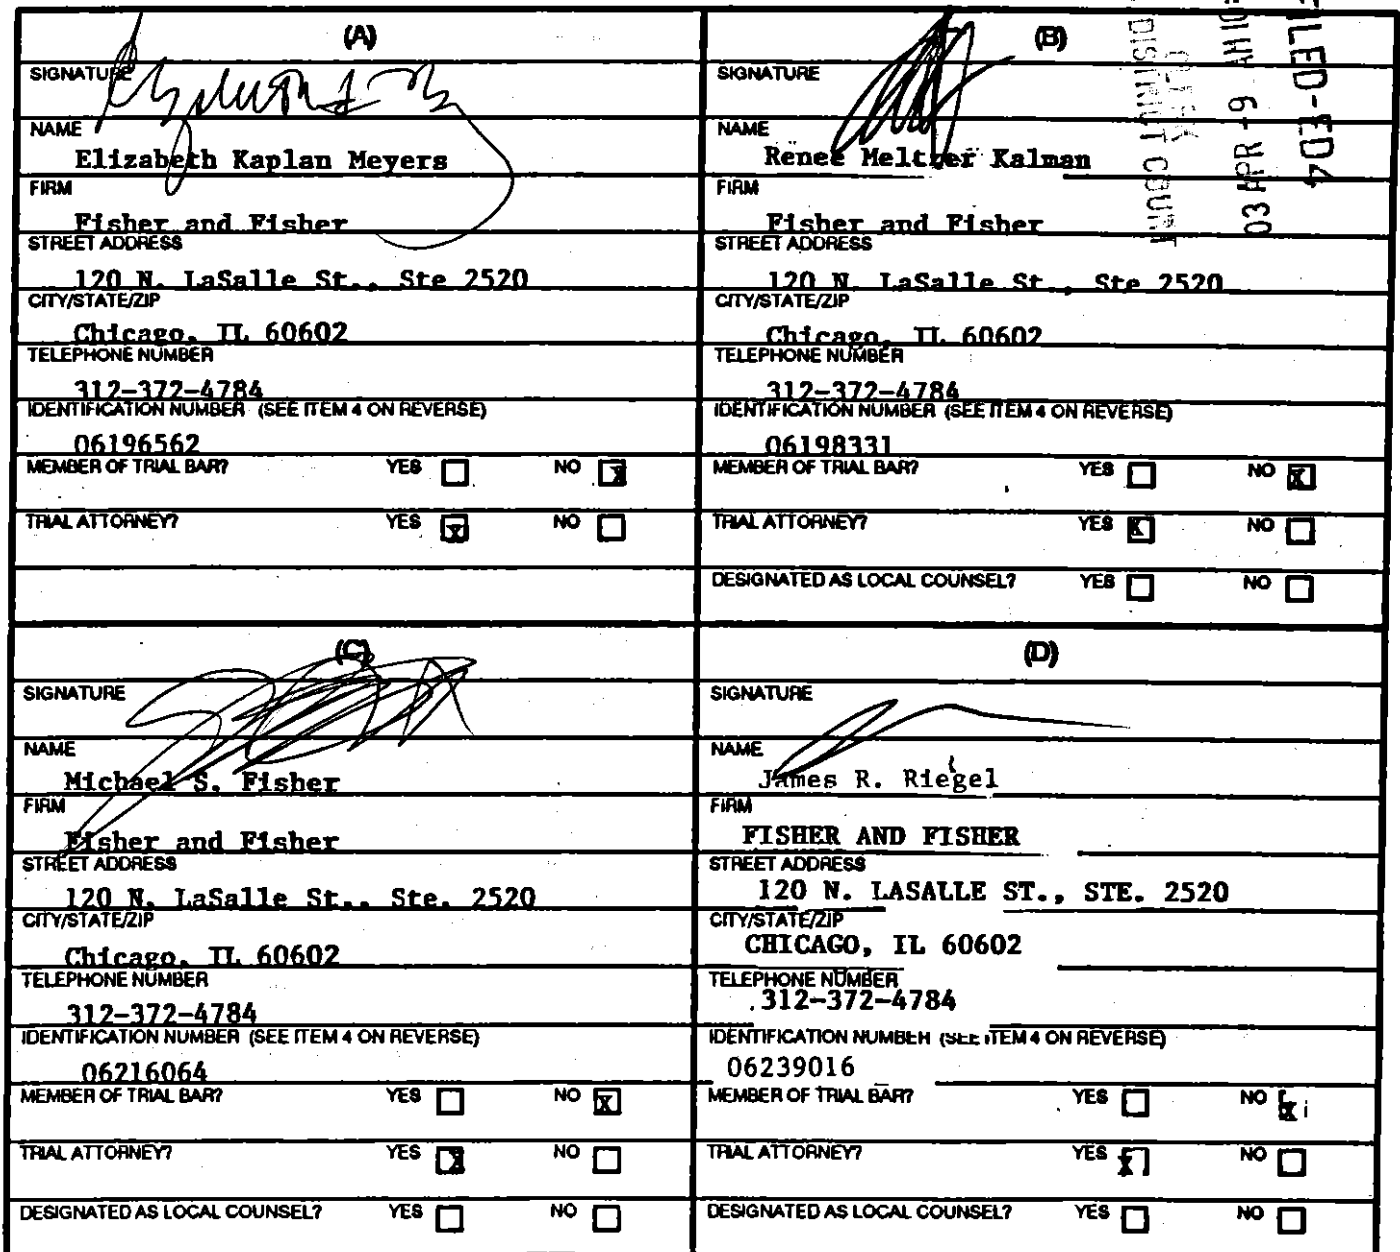 (A)
SIGNATURE
NAME
Elizabeth Kaplan Meyers
FIRM
Fisher and Fisher
STREET ADDRESS
120 N. LaSalle St., Ste 2520
CITY/STATE/ZIP
Chicago, IL 60602
TELEPHONE NUMBER
312-372-4784
IDENTIFICATION NUMBER (SEE ITEM 4 ON REVERSE)
06196562
MEMBER OF TRIAL BAR? YES NO X
TRIAL ATTORNEY? YES X NO
(B)
SIGNATURE
NAME
Renee Meltzer Kalman
FIRM
Fisher and Fisher
STREET ADDRESS
120 N. LaSalle St., Ste 2520
CITY/STATE/ZIP
Chicago, IL 60602
TELEPHONE NUMBER
312-372-4784
IDENTIFICATION NUMBER (SEE ITEM 4 ON REVERSE)
06198331
MEMBER OF TRIAL BAR? YES NO X
TRIAL ATTORNEY? YES X NO
DESIGNATED AS LOCAL COUNSEL? YES NO
FILED-ED4
03 APR -9 AM 10
CLERK
DISTRICT COURT
(C)
SIGNATURE
NAME
Michael S. Fisher
FIRM
Fisher and Fisher
STREET ADDRESS
120 N. LaSalle St., Ste. 2520
CITY/STATE/ZIP
Chicago, IL 60602
TELEPHONE NUMBER
312-372-4784
IDENTIFICATION NUMBER (SEE ITEM 4 ON REVERSE)
06216064
MEMBER OF TRIAL BAR? YES NO X
TRIAL ATTORNEY? YES X NO
DESIGNATED AS LOCAL COUNSEL? YES NO
(D)
SIGNATURE
NAME
James R. Riegel
FIRM
FISHER AND FISHER
STREET ADDRESS
120 N. LASALLE ST., STE. 2520
CITY/STATE/ZIP
CHICAGO, IL 60602
TELEPHONE NUMBER
312-372-4784
IDENTIFICATION NUMBER (SEE ITEM 4 ON REVERSE)
06239016
MEMBER OF TRIAL BAR? YES NO X
TRIAL ATTORNEY? YES X NO
DESIGNATED AS LOCAL COUNSEL? YES NO